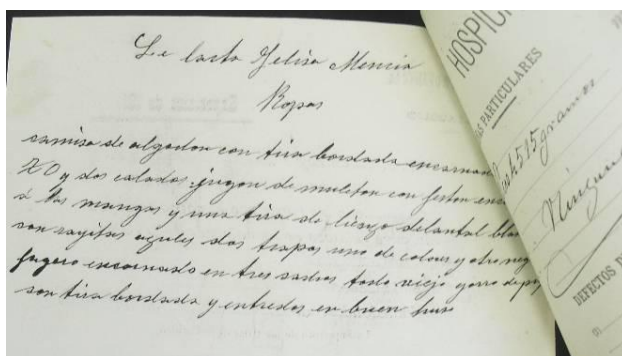 Le lacta Felisa Mencia
Ropas
camisa de algodon con tira bordada encarnad
Z O y dos calados jugon de muleton con feston enc
á las mangas y una tira de lienzo delantal blan
con rayitas azules dos trapos uno de colores y otro neg
fagero encarnado en tres sadros todo viejo gorro de p
con tira bordada y entredos en buen huso
HOSPIC
S PARTICULARES
Pesa 4.595 gramos
Ningun
DEFECTOS D